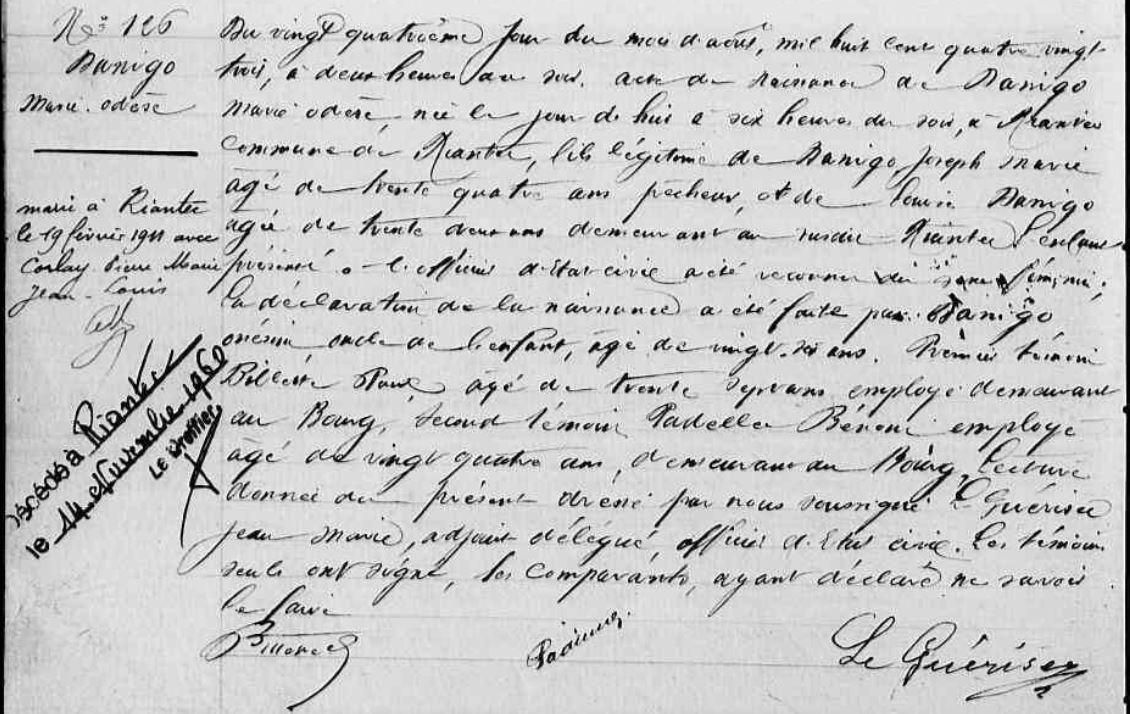 N° 126
Danigo
Marie odère
marié à Riantec
le 19 février 1911 avec
Corlay Pierre Marie
Jean-Louis
Décédée à Riantec
le 14 Novembre 1960
Le Greffier
Du vingt quatrième jour du mois d'août, mil huit cent quatre vingt
trois, à deux heures du soir. acte de naissance de Danigo
Marie odère née le jour d'hui à six heures du soir, à Riantec
commune de Riantec, fils légitime de Danigo Joseph Marie
âgé de trente quatre ans pêcheur, et de Louise Danigo
agée de trente deux ans demeurant au susdit Riantec l'enfant
présenté a l'officier d'état civil a été reconnu du sexe féminin;
la déclaration de la naissance a été faite par Danigo
onésim oncle de l'enfant, âgé de vingt-six ans. Premier témoin
âgé de trente sept ans employé demeurant
au Bourg, second témoin employé
âgé de vingt quatre ans, demeurant au Bourg, lecture
donnée du présent dressé par nous soussigné Le Guériser
jean Marie, adjoint délégué, officier d'Etat civil. Les témoins
seuls ont signé, les comparants, ayant déclaré ne savoir
le faire
Le Guériser